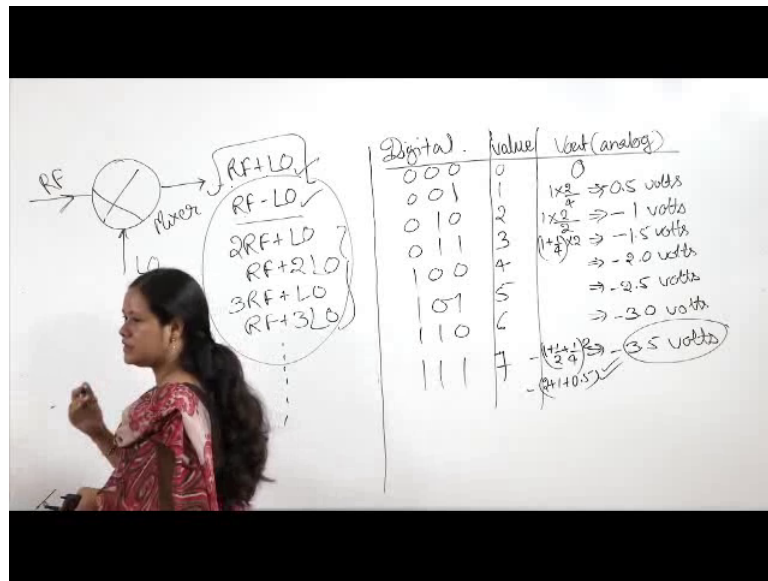 RF
Mixer
LO
RF+LO
RF-LO
2RF+LO
RF+2LO
3RF+LO
RF+3LO
Digital. value Vout (analog)
000 0 0
001 1 1×2/4 ⇒ 0.5 volts
010 2 1×2/2 ⇒ -1 volts
011 3 (1+1/4)×2 ⇒ -1.5 volts
100 4 ⇒ -2.0 volts
101 5 ⇒ -2.5 volts
110 6 ⇒ -3.0 volts
111 7 -(1+1/2+1/4)2 ⇒ -3.5 volts
-(2+1+0.5)